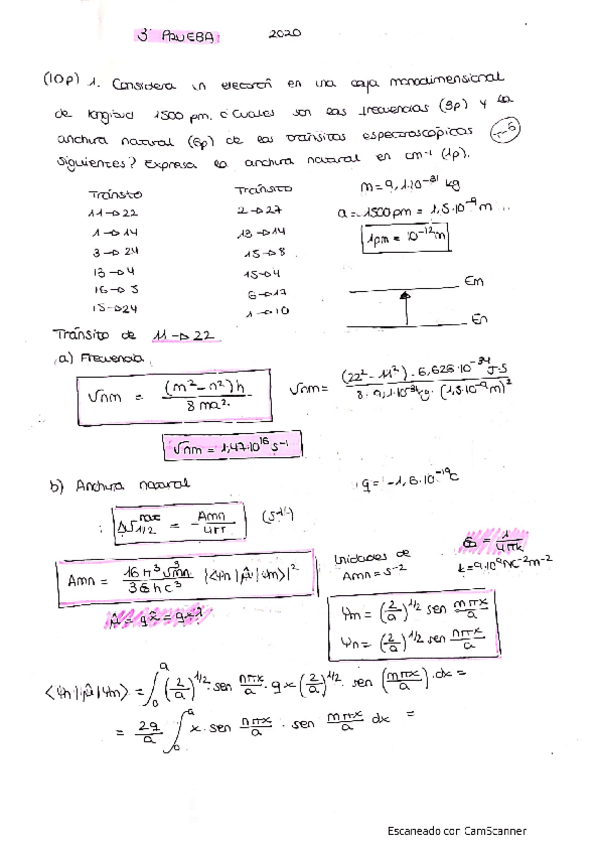 3ª PRUEBA 2020
(10p) 1. Considera un electrón en una caja monodimensional
de longitud 1500 pm. ¿Cuáles son las frecuencias (3p) y la
anchura natural (6p) de los tránsitos espectroscópicos
siguientes? Expresa la anchura natural en cm⁻¹ (1p).
Tránsito Tránsito m = 9,1·10⁻³¹ kg
11→22 2→27 a = 1500pm = 1,5·10⁻⁹ m
1→14 13→14 1pm = 10⁻¹² m
3→24 15→8
13→4 15→4 Em
16→5 6→17
15→24 1→10 En
Tránsito de 11→22
a) Frecuencia
νnm = (m²-n²)h / 8ma² νnm = (22²-11²)·6,626·10⁻³⁴ J·S / 8·9,1·10⁻³¹kg·(1,5·10⁻⁹m)²
νnm = 1,47·10¹⁶ s⁻¹
b) Anchura natural q = -1,6·10⁻¹⁹C
Δν₁/₂ⁿᵃᵗ = Amn / 4π (s⁻¹)
Amn = 16π³ν³mn / 3ε h c³ |<ψn|μ̂|ψm>|² Unidades de
Amn = s⁻² = 1 / 4πk
k = 9·10⁹ N·C⁻²m⁻²
μ̂ = qx̂ = q·x ψm = (2/a)^1/2 sen mπx/a
ψn = (2/a)^1/2 sen nπx/a
<ψn|μ̂|ψm> = ∫₀ᵃ (2/a)^1/2 · sen nπx/a · qx (2/a)^1/2 · sen (mπx/a) · dx =
= 2q/a ∫₀ᵃ x · sen nπx/a · sen mπx/a dx =
Escaneado con CamScanner